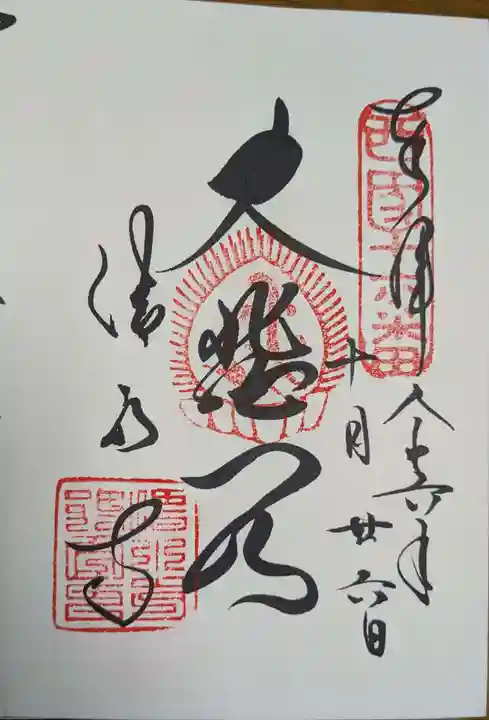 西国十六番
奉拝
令和六年
十月廿六日
大悲閣
清水寺